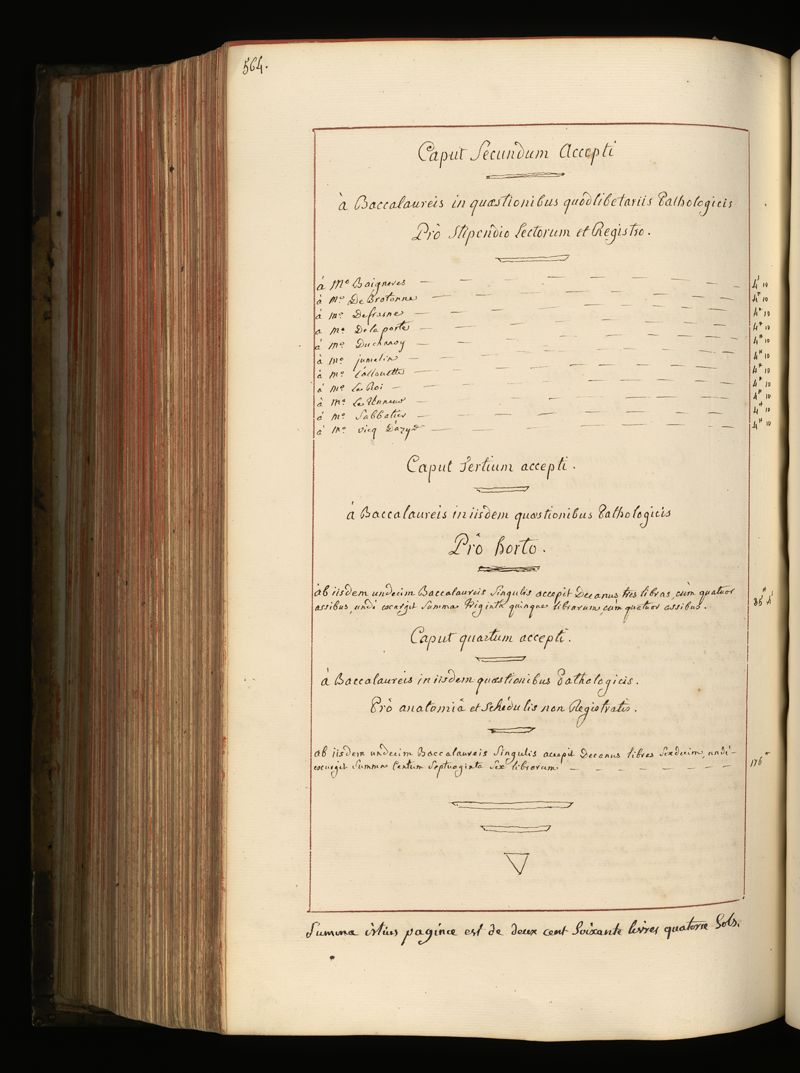 564.
Caput Secundum Accepti
à Baccalaureis in quæstionibus quodlibetariis Pathologicis
Prò Stipendio Lectorum et Registro.
à Mo Baigneres — — — — — — — 4# 10
à Mo De Brotonne — — — — — — — 4# 10
à Mo Defrasne — — — — — — — 4# 10
à Mo De la porte — — — — — — — 4# 10
à Mo Duchanoy — — — — — — — 4# 10
à Mo jumelin — — — — — — — 4# 10
à Mo Lallouette — — — — — — — 4# 10
à Mo Le Roi — — — — — — — 4# 10
à Mo Le Thieux — — — — — — — 4# 10
à Mo Sabbatier — — — — — — — 4# 10
à Mo vicq D'azyr — — — — — — — 4# 10
Caput Tertium accepti.
à Baccalaureis in iisdem quæstionibus Pathologicis
Prò horto.
ab iisdem undecim Baccalaureis Singulis accepit Decanus tres libras, cùm quatuor
assibus, undè exurgit Summa triginta quinque librarum, cum quatuor assibus. 35# 4s
Caput quartum accepti.
à Baccalaureis in iisdem quæstionibus Pathologicis.
Prò anatomiâ et Schedulis non Registratis.
ab iisdem undecim Baccalaureis Singulis accepit Decanus libras Sexdecim, undè-
exurgit Summa Centum Septuaginta Sex librarum — — — — — — 176#
Summa istius paginæ est de deux cent Soixante livres quatorze Sols.